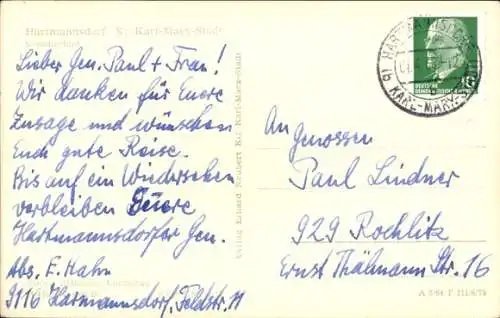 Hartmannsdorf Kr. Karl-Marx-Stadt
Lieber Gen. Paul + Frau!
Wir danken für Euere
Zusage und wünschen
Euch gute Reise.
Bis auf ein Wiedersehen
verbleiben Euere
Hartmannsdorfer Gen.
Abs. E. Hahn
9116 Harmannsdorf, Feldstr. 11
HARTMANNSDORF
KARL-MARX-
DEUTSCHE
DEMOKRATISCHE REPUBLIK
An
Genossen
Paul Lindner
929 Rochlitz
Ernst Thälmann Str. 16
Verlag Erhard Neubert KG Karl-Marx-Stadt